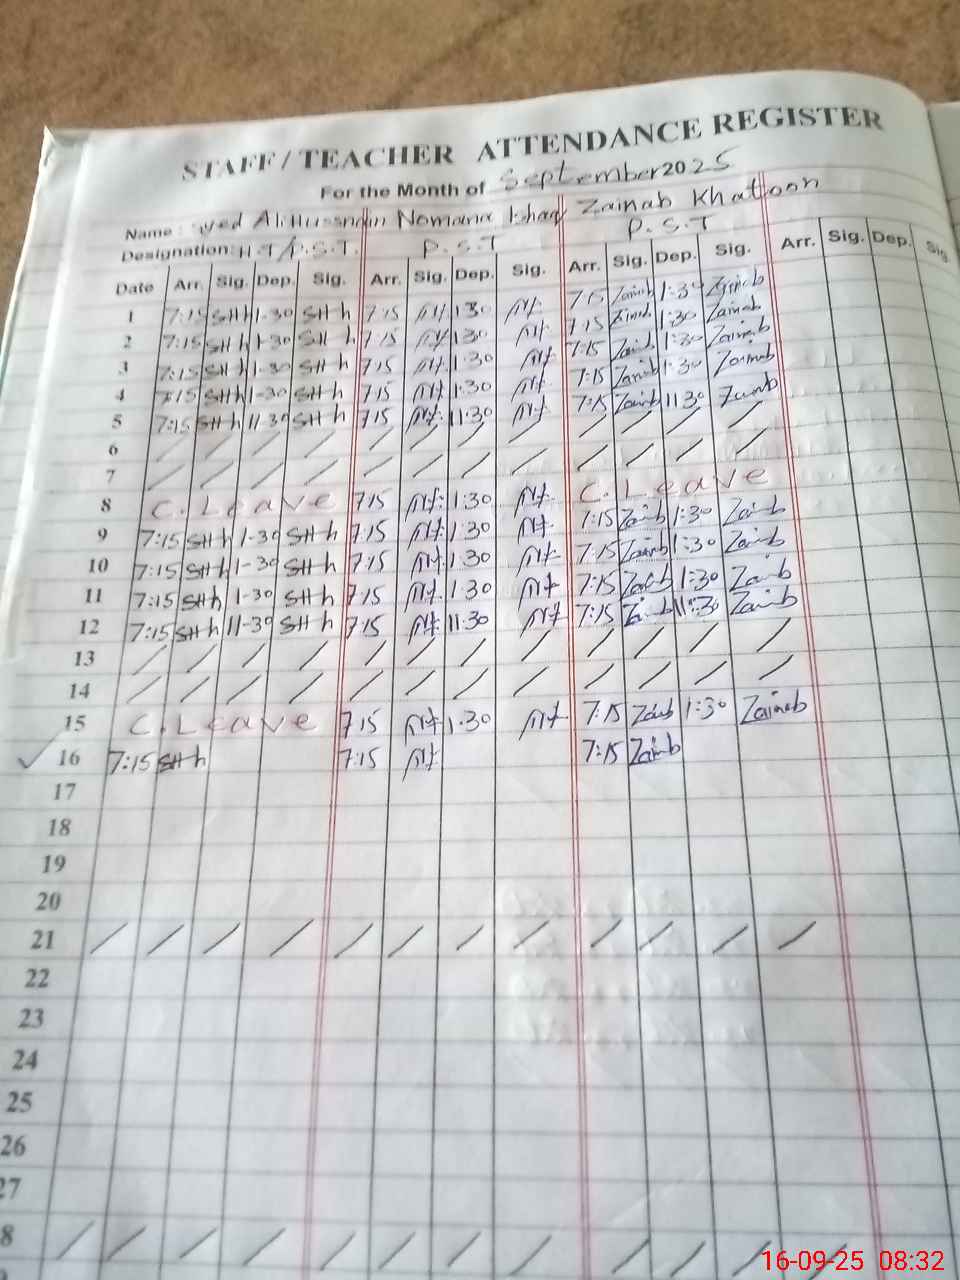 STAFF / TEACHER ATTENDANCE REGISTER
For the Month of September 2025
Name: Syed Ali Hussnain Nomana Ishaq Zainab Khatoon
Designation: H.T/P.S.T. P.S.T P.S.T
Date Arr. Sig. Dep. Sig. Arr. Sig. Dep. Sig. Arr. Sig. Dep. Sig. Arr. Sig. Dep. Sig.
1 7:15 SHh 1-30 SHh 7:15 1:30 7:15 Zainab 1:30 Zainab
2 7:15 SHh 1-30 SHh 7:15 1:30 7:15 Zainab 1:30 Zainab
3 7:15 SHh 1-30 SHh 7:15 1:30 7:15 Zainab 1:30 Zainab
4 7:15 SHh 1-30 SHh 7:15 1:30 7:15 Zainab 1:30 Zainab
5 7:15 SHh 11-30 SHh 7:15 11:30 7:15 Zainab 11:30 Zainab
6 / / / / / / / / / / / /
7 / / / / / / / / / / / /
8 C. Leave 7:15 1:30 C. Leave
9 7:15 SHh 1-30 SHh 7:15 1:30 7:15 Zainb 1:30 Zainb
10 7:15 SHh 1-30 SHh 7:15 1:30 7:15 Zainb 1:30 Zainb
11 7:15 SHh 1-30 SHh 7:15 1:30 7:15 Zainb 1:30 Zainb
12 7:15 SHh 11-30 SHh 7:15 11:30 7:15 Zainb 11:30 Zainb
13 / / / / / / / / / / / /
14 / / / / / / / / / / / /
15 C. Leave 7:15 1:30 7:15 Zainb 1:30 Zainab
16 7:15 SHh 7:15 7:15 Zainb
17
18
19
20
21 / / / / / / / / / / / /
22
23
24
25
26
27
8 / / / / / / / / / / / /
16-09-25 08:32